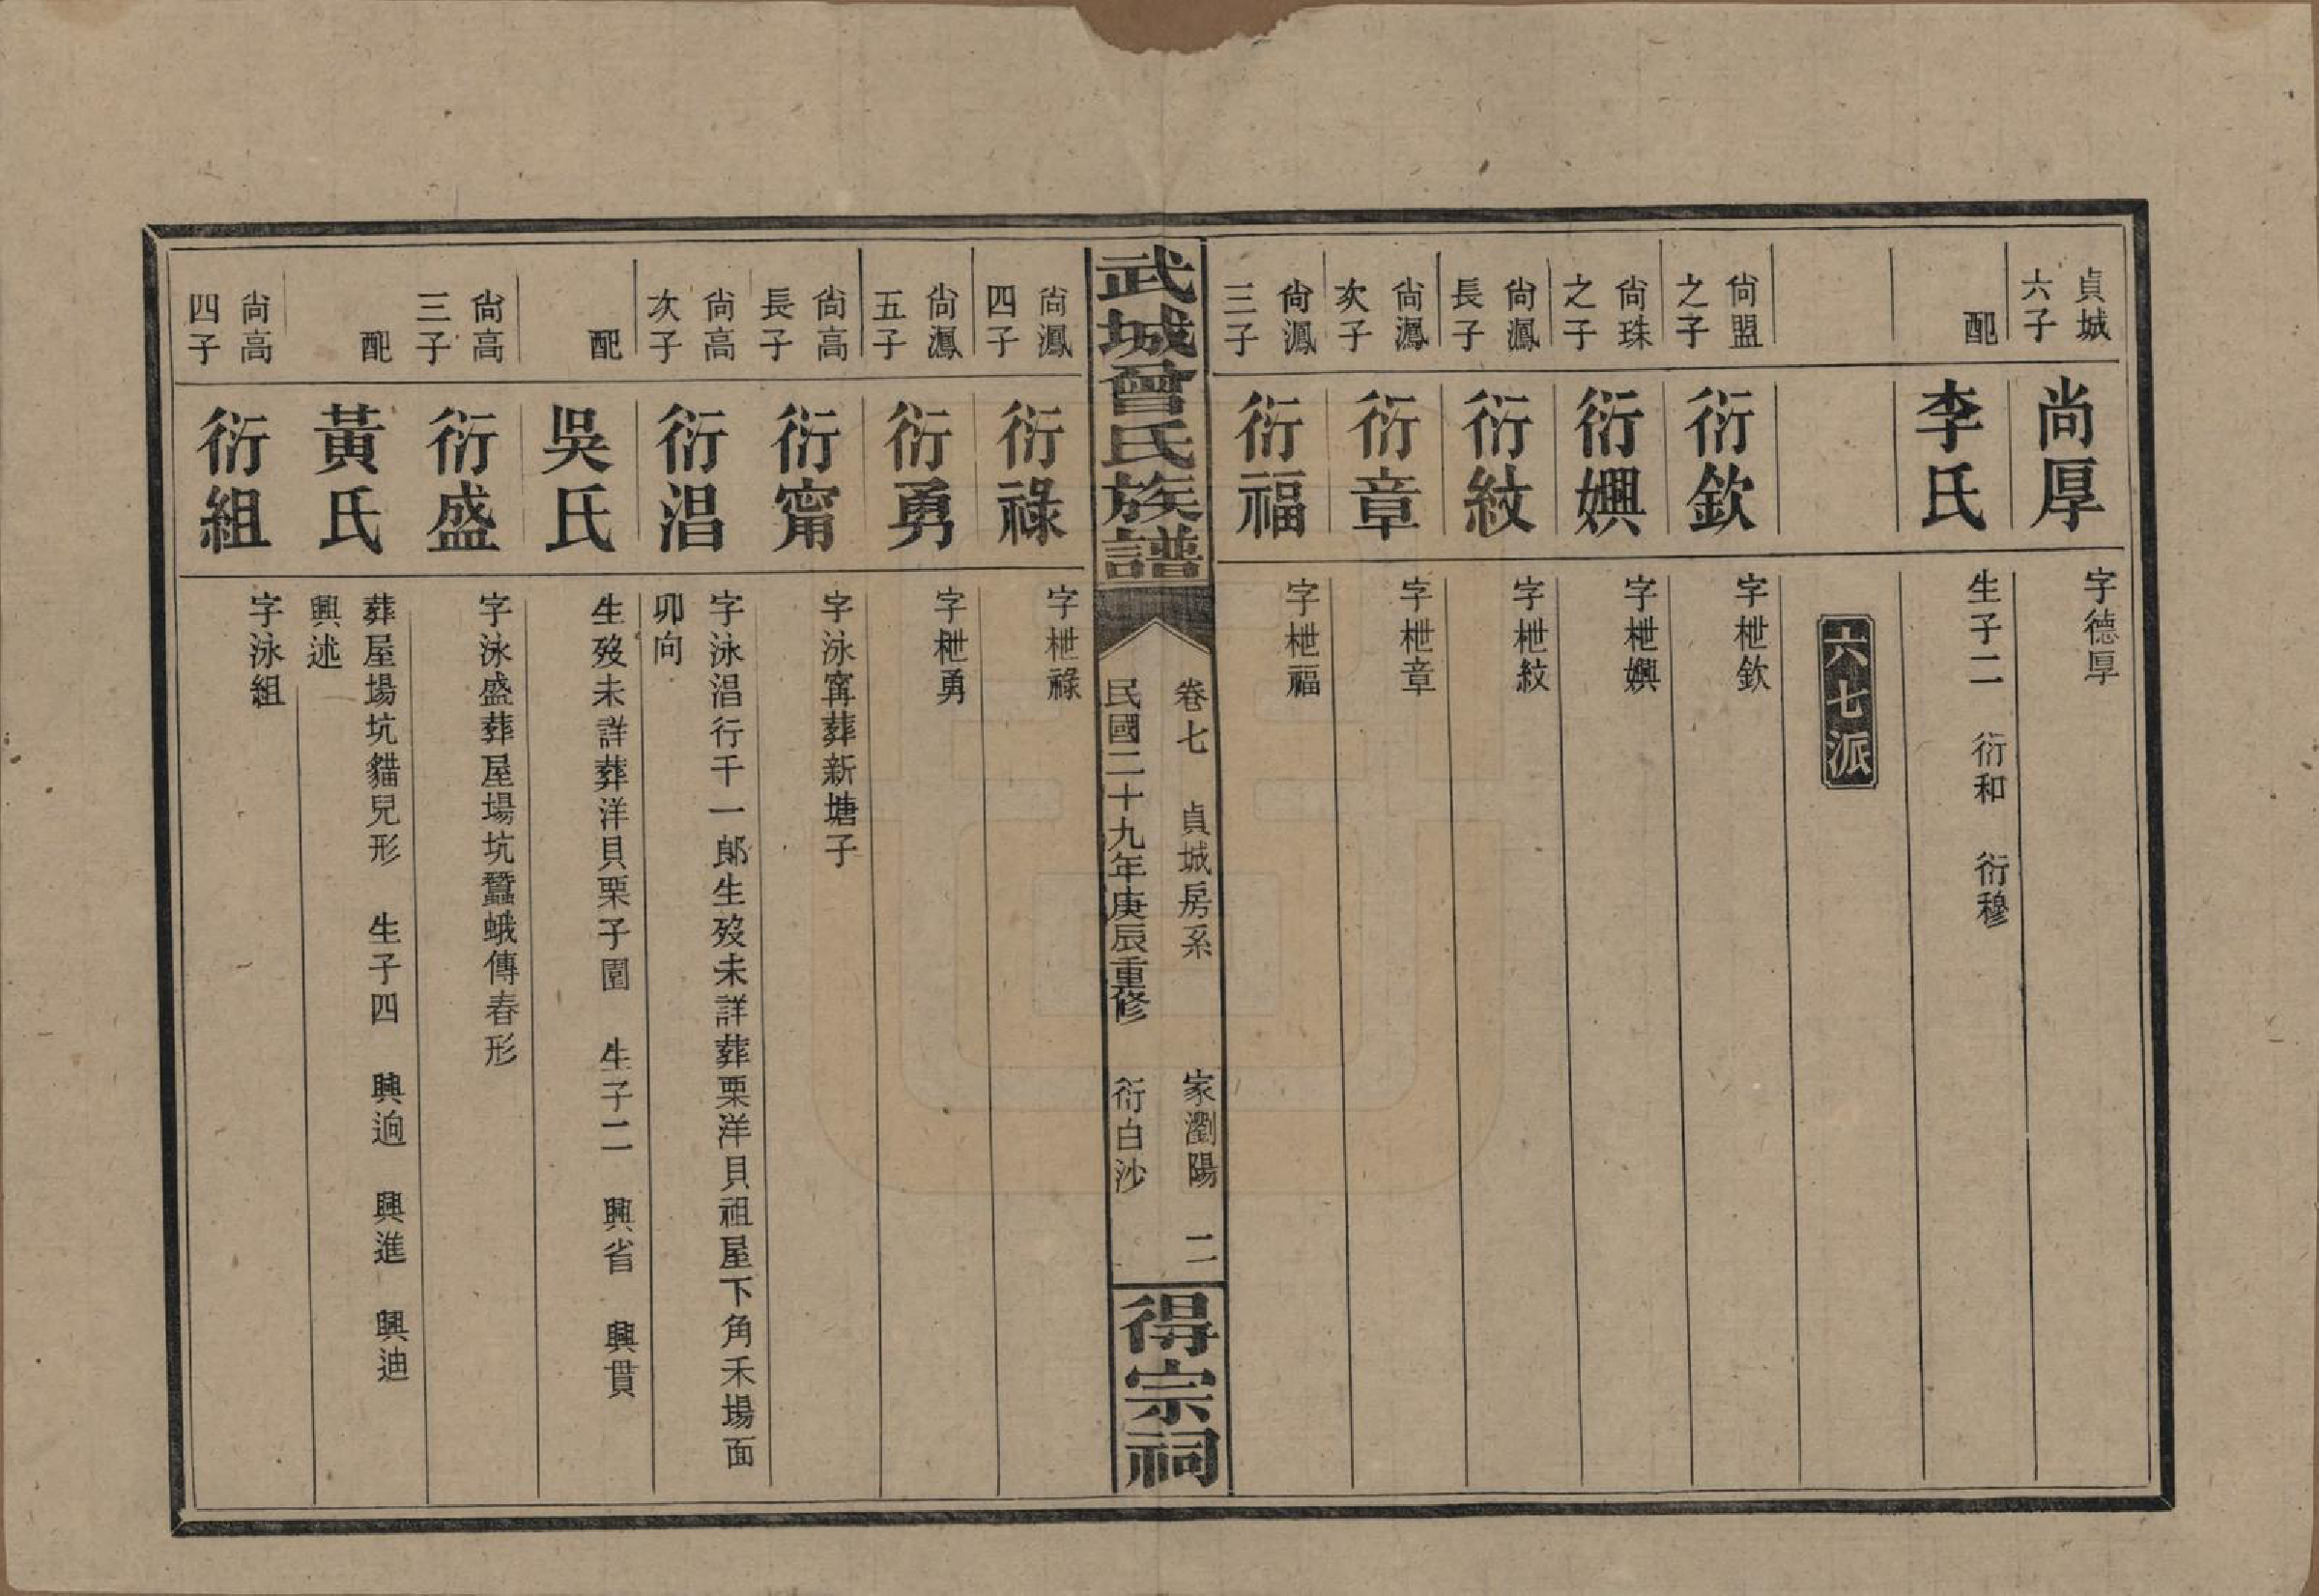 貞城
六子
尚厚
字德厚
配
李氏
生子二　衍和　衍穆
六七派
尙盟
之子
衍欽
字枻欽
尙珠
之子
衍嬩
字枻嬩
尙鳳
長子
衍紋
字枻紋
尙鳳
次子
衍章
字枻章
尙鳳
三子
衍福
字枻福
武城曾氏族譜
卷七　貞城房系　家瀏陽　二
民國二十九年庚辰重修　衍白沙
得宗祠
尙鳳
四子
衍祿
字枻祿
尙鳳
五子
衍勇
字枻勇
尙高
長子
衍甯
字泳甯葬新塘子
尙高
次子
衍淐
字泳淐行千一郞生歿未詳葬栗洋貝祖屋下角禾場面
卯向
配
吳氏
生歿未詳葬洋貝栗子園　生子二　興省　興貫
尙高
三子
衍盛
字泳盛葬屋場坑蠶蛾傳春形
配
黃氏
葬屋場坑貓兒形　生子四　興逈　興進　興迪
興述
尙高
四子
衍組
字泳組